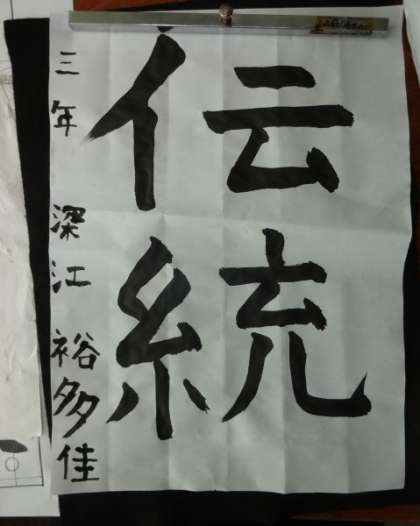 伝統
三年 深江 裕多佳